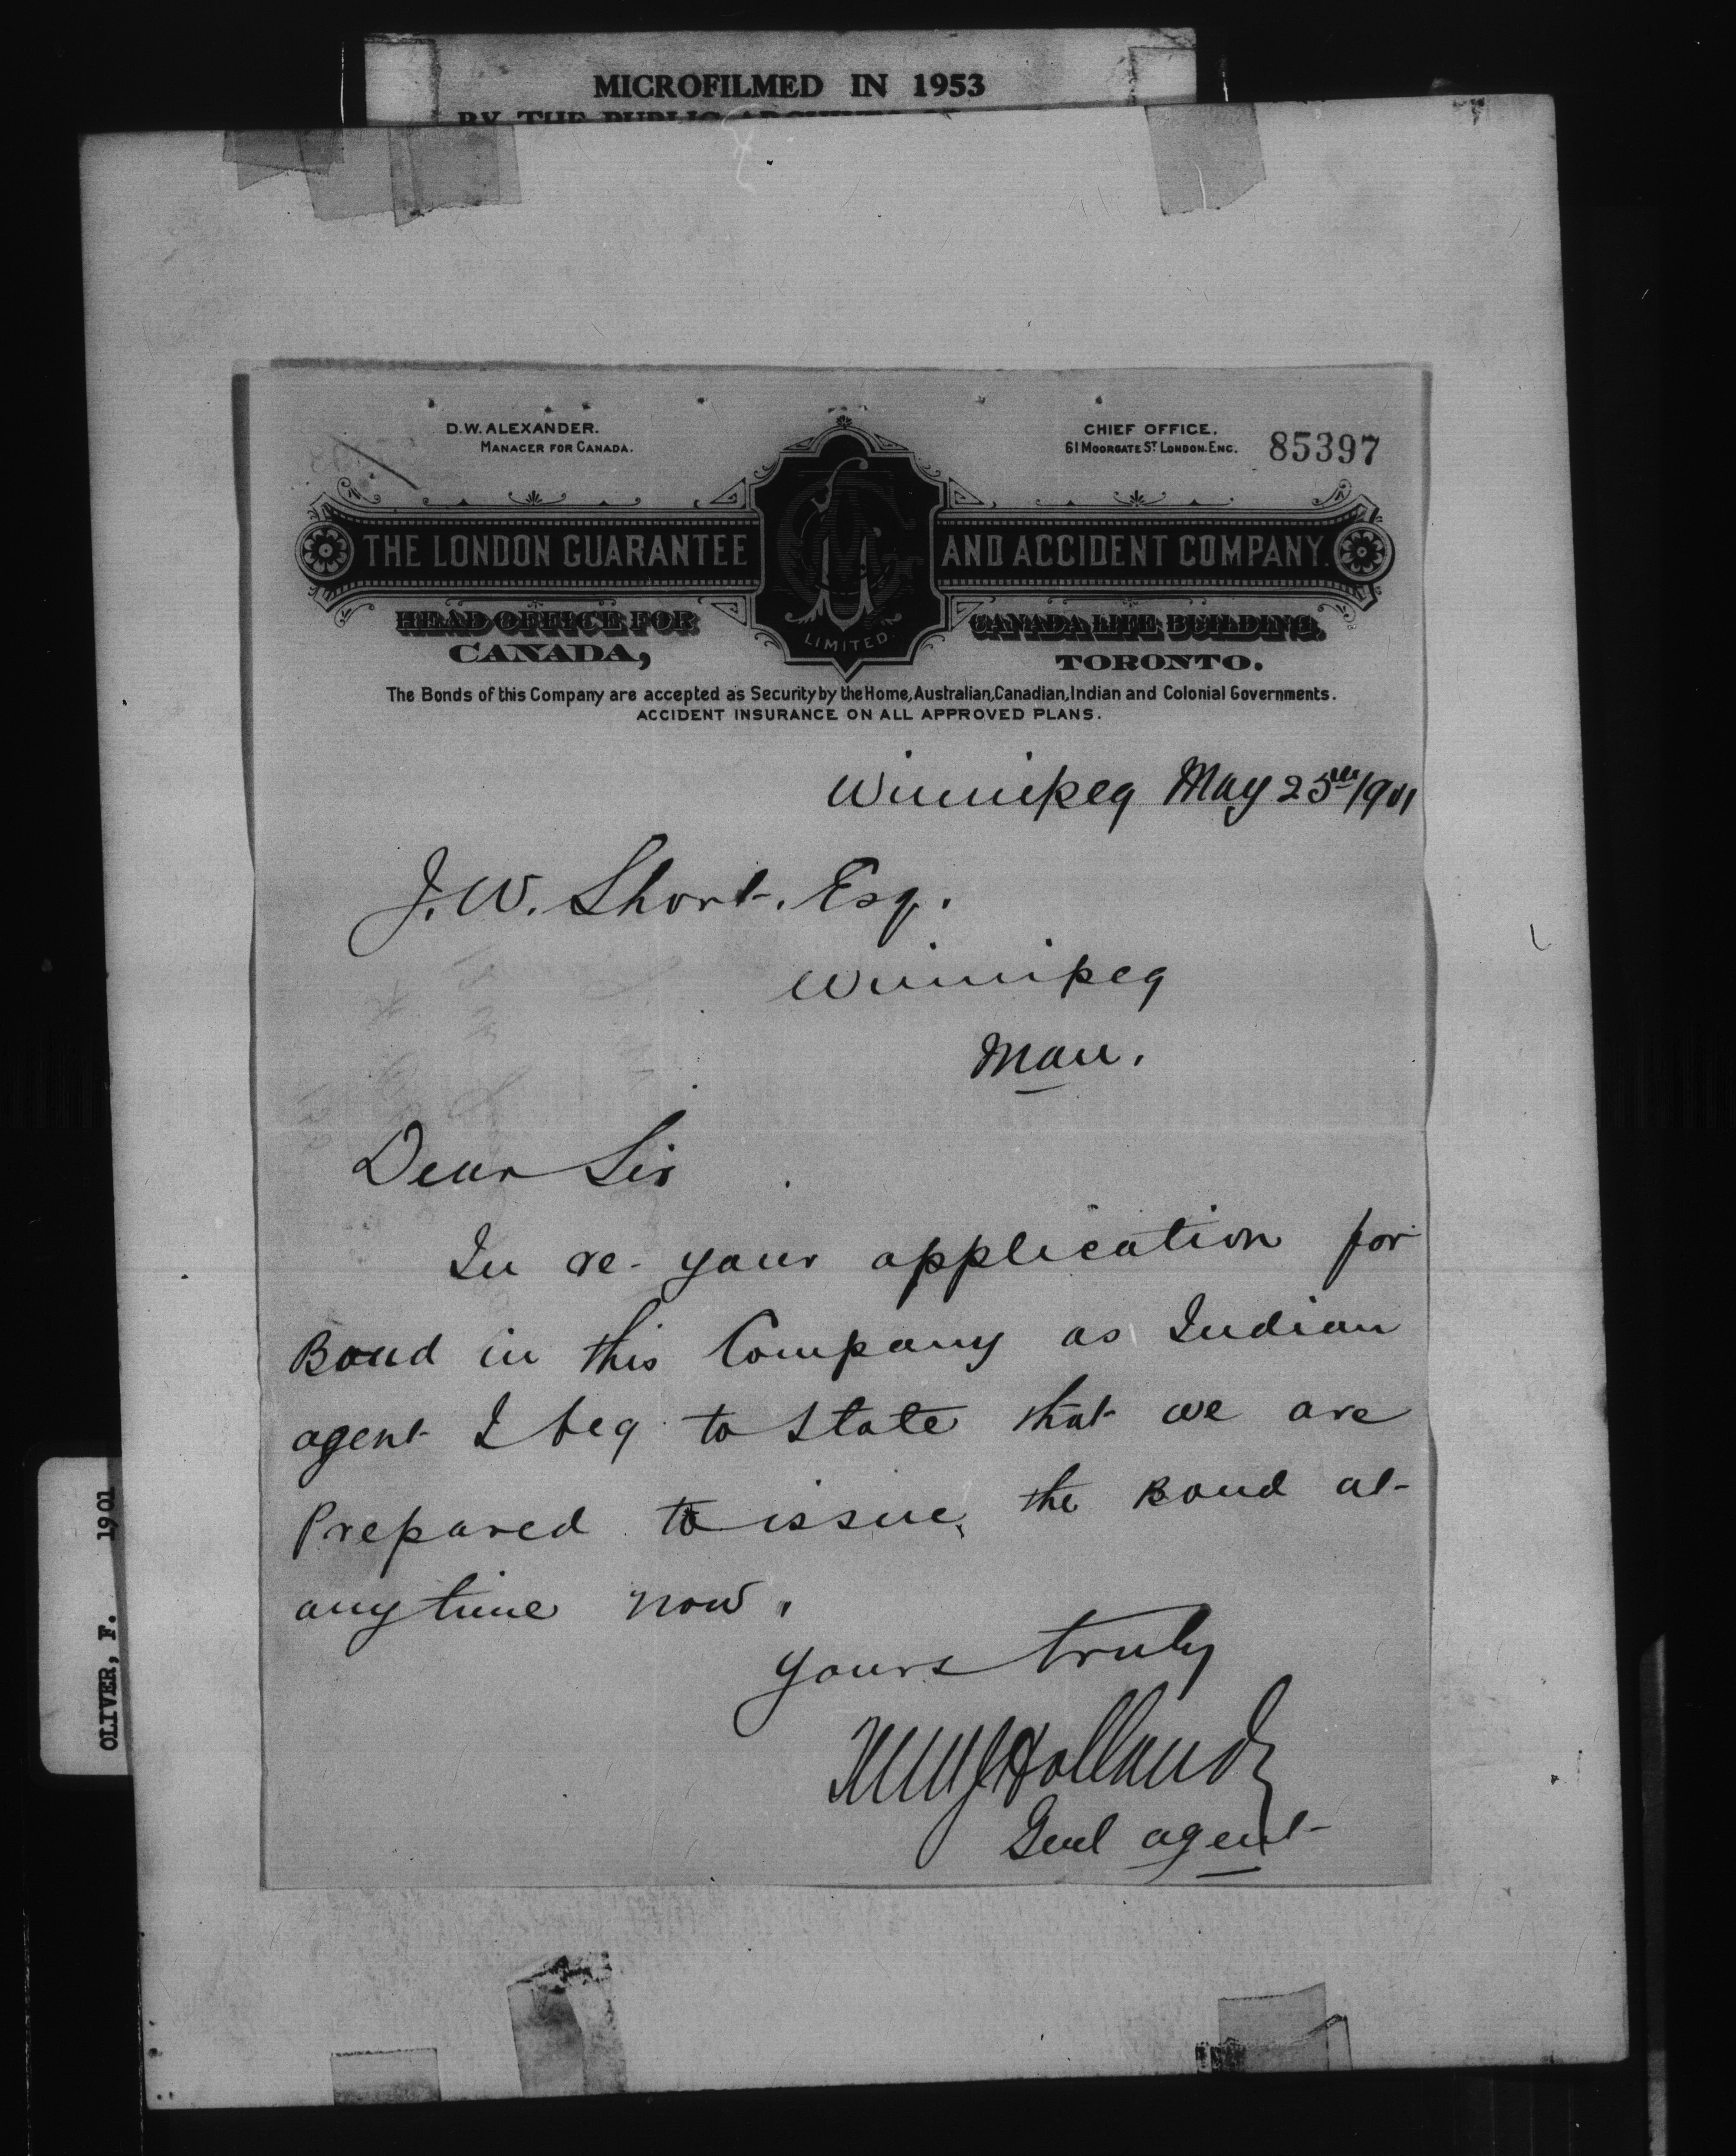 MICROFILMED IN 1953
D.W. ALEXANDER.
MANAGER FOR CANADA.
CHIEF OFFICE,
61 MOORGATE ST. LONDON. ENG.
85397
THE LONDON GUARANTEE AND ACCIDENT COMPANY.
LIMITED.
HEAD OFFICE FOR CANADA LIFE BUILDING,
CANADA, TORONTO.
The Bonds of this Company are accepted as Security by the Home, Australian, Canadian, Indian and Colonial Governments.
ACCIDENT INSURANCE ON ALL APPROVED PLANS.
Winnipeg May 25th/1901
J. W. Short. Esq.
Winnipeg
Man.
Dear Sir
In re- your application for
Bond in this Company as Indian
agent I beg to state that we are
Prepared to issue the Bond at
anytime now.
yours truly
Holland
Genl agent
OLIVER, F. 1901